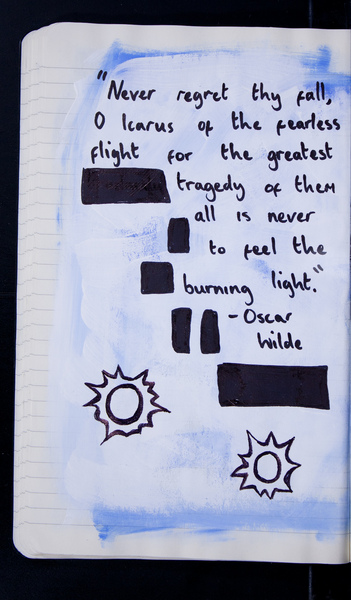 "Never regret thy fall,
O Icarus of the fearless
flight for the greatest
tragedy of them
all is never
to feel the
burning light."
-Oscar
Wilde